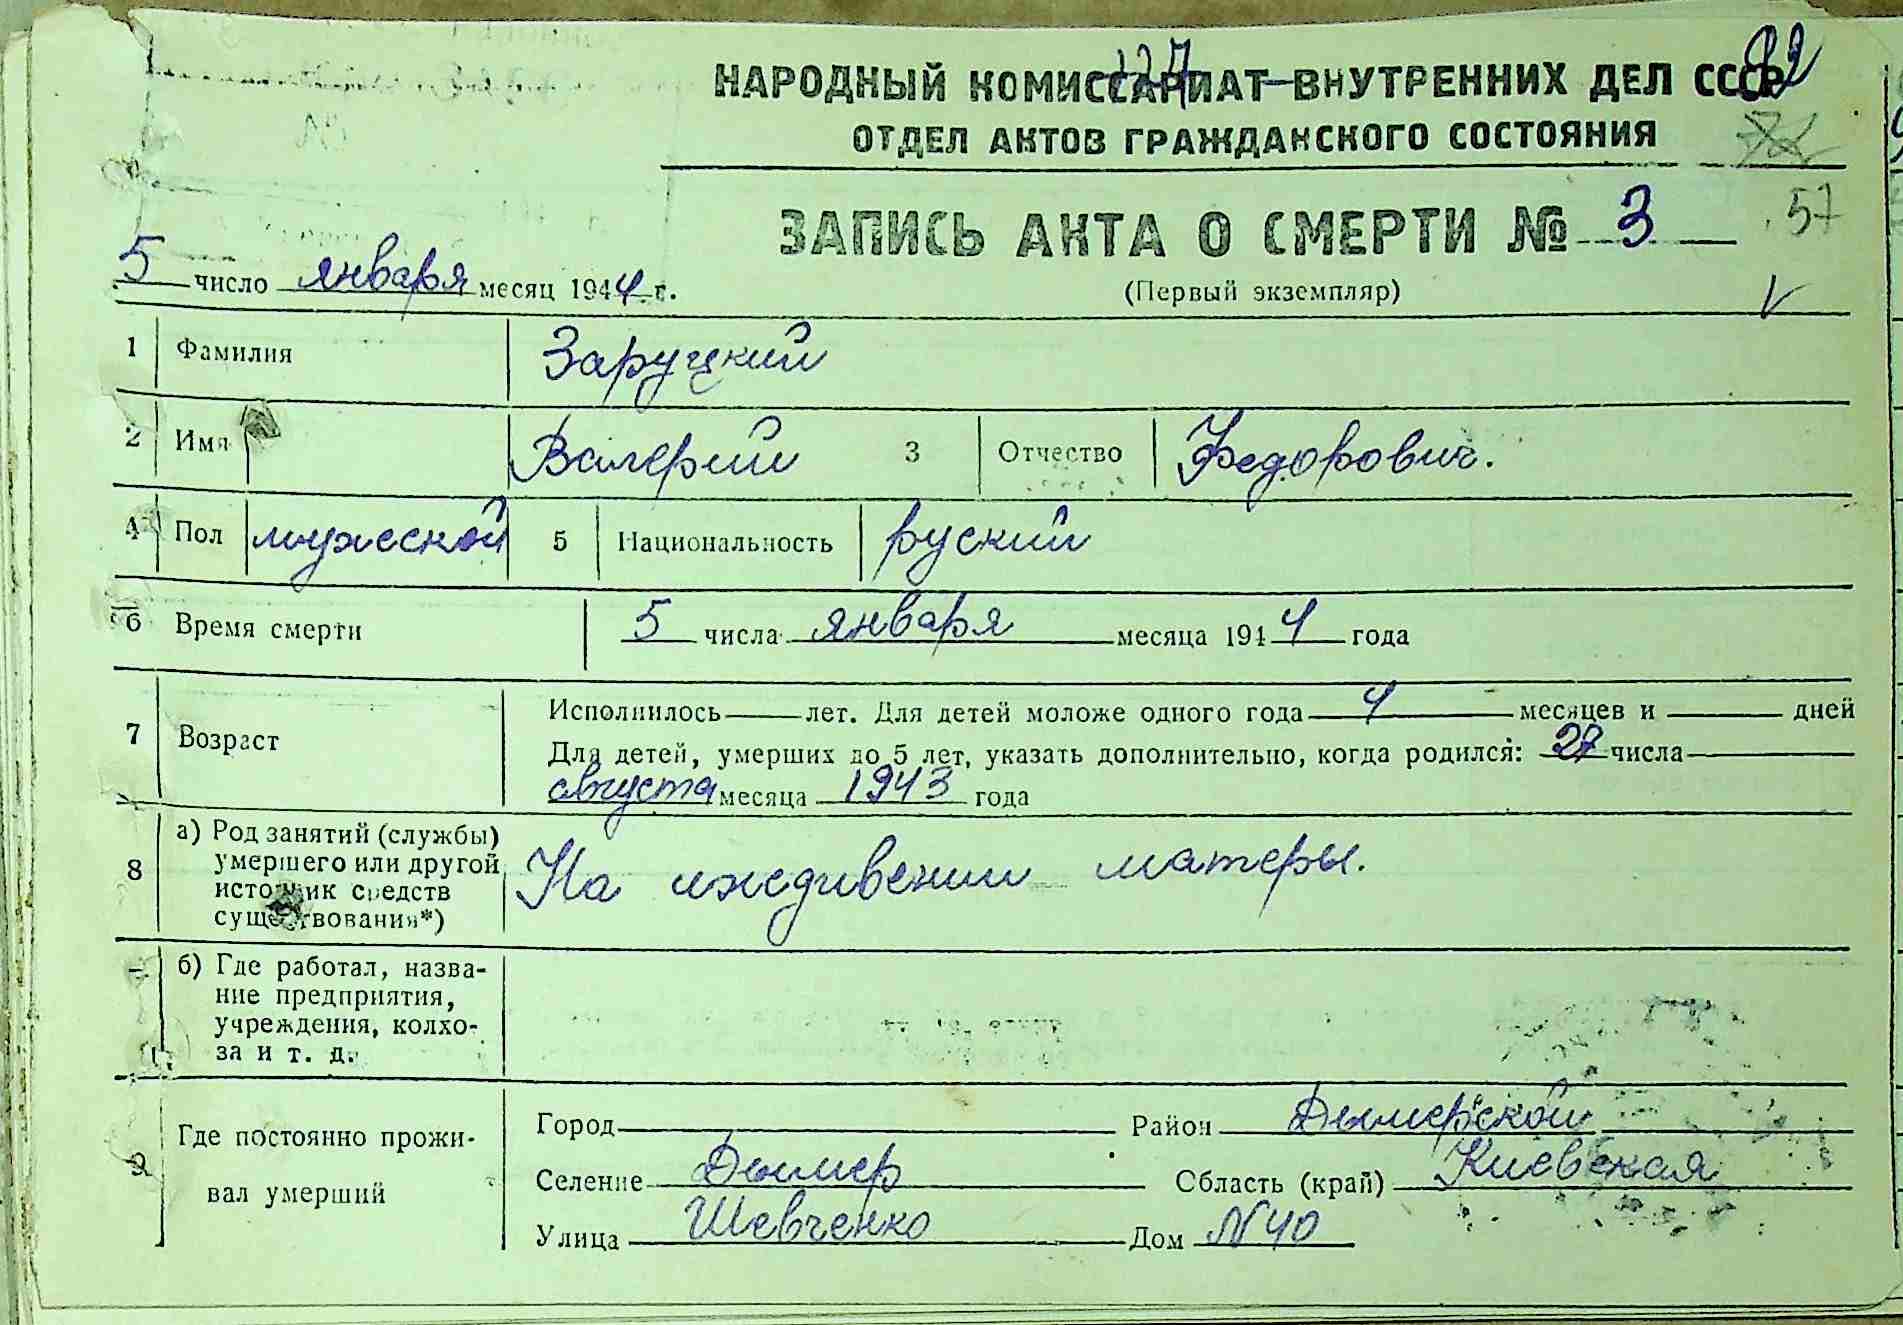 82
НАРОДНЫЙ КОМИССАРИАТ ВНУТРЕННИХ ДЕЛ СССР
ОТДЕЛ АКТОВ ГРАЖДАНСКОГО СОСТОЯНИЯ
ЗАПИСЬ АКТА О СМЕРТИ № 3
57
5 число января месяц 1944 г.
(Первый экземпляр)
1 Фамилия Заруцкий
2 Имя Валерий 3 Отчество Федорович.
4 Пол мужеской 5 Национальность руский
6 Время смерти 5 числа января месяца 1944 года
7 Возраст Исполнилось — лет. Для детей моложе одного года 4 месяцев и — дней
Для детей, умерших до 5 лет, указать дополнительно, когда родился: 27 числа
августа месяца 1943 года
8 а) Род занятий (службы)
умершего или другой
источник средств
существования*)
На иждивении матеры.
б) Где работал, назва-
ние предприятия,
учреждения, колхо-
за и т. д.
9 Где постоянно прожи-
вал умерший
Город Район Дымерской
Селение Дымер Область (край) Киевская
Улица Шевченко Дом N40